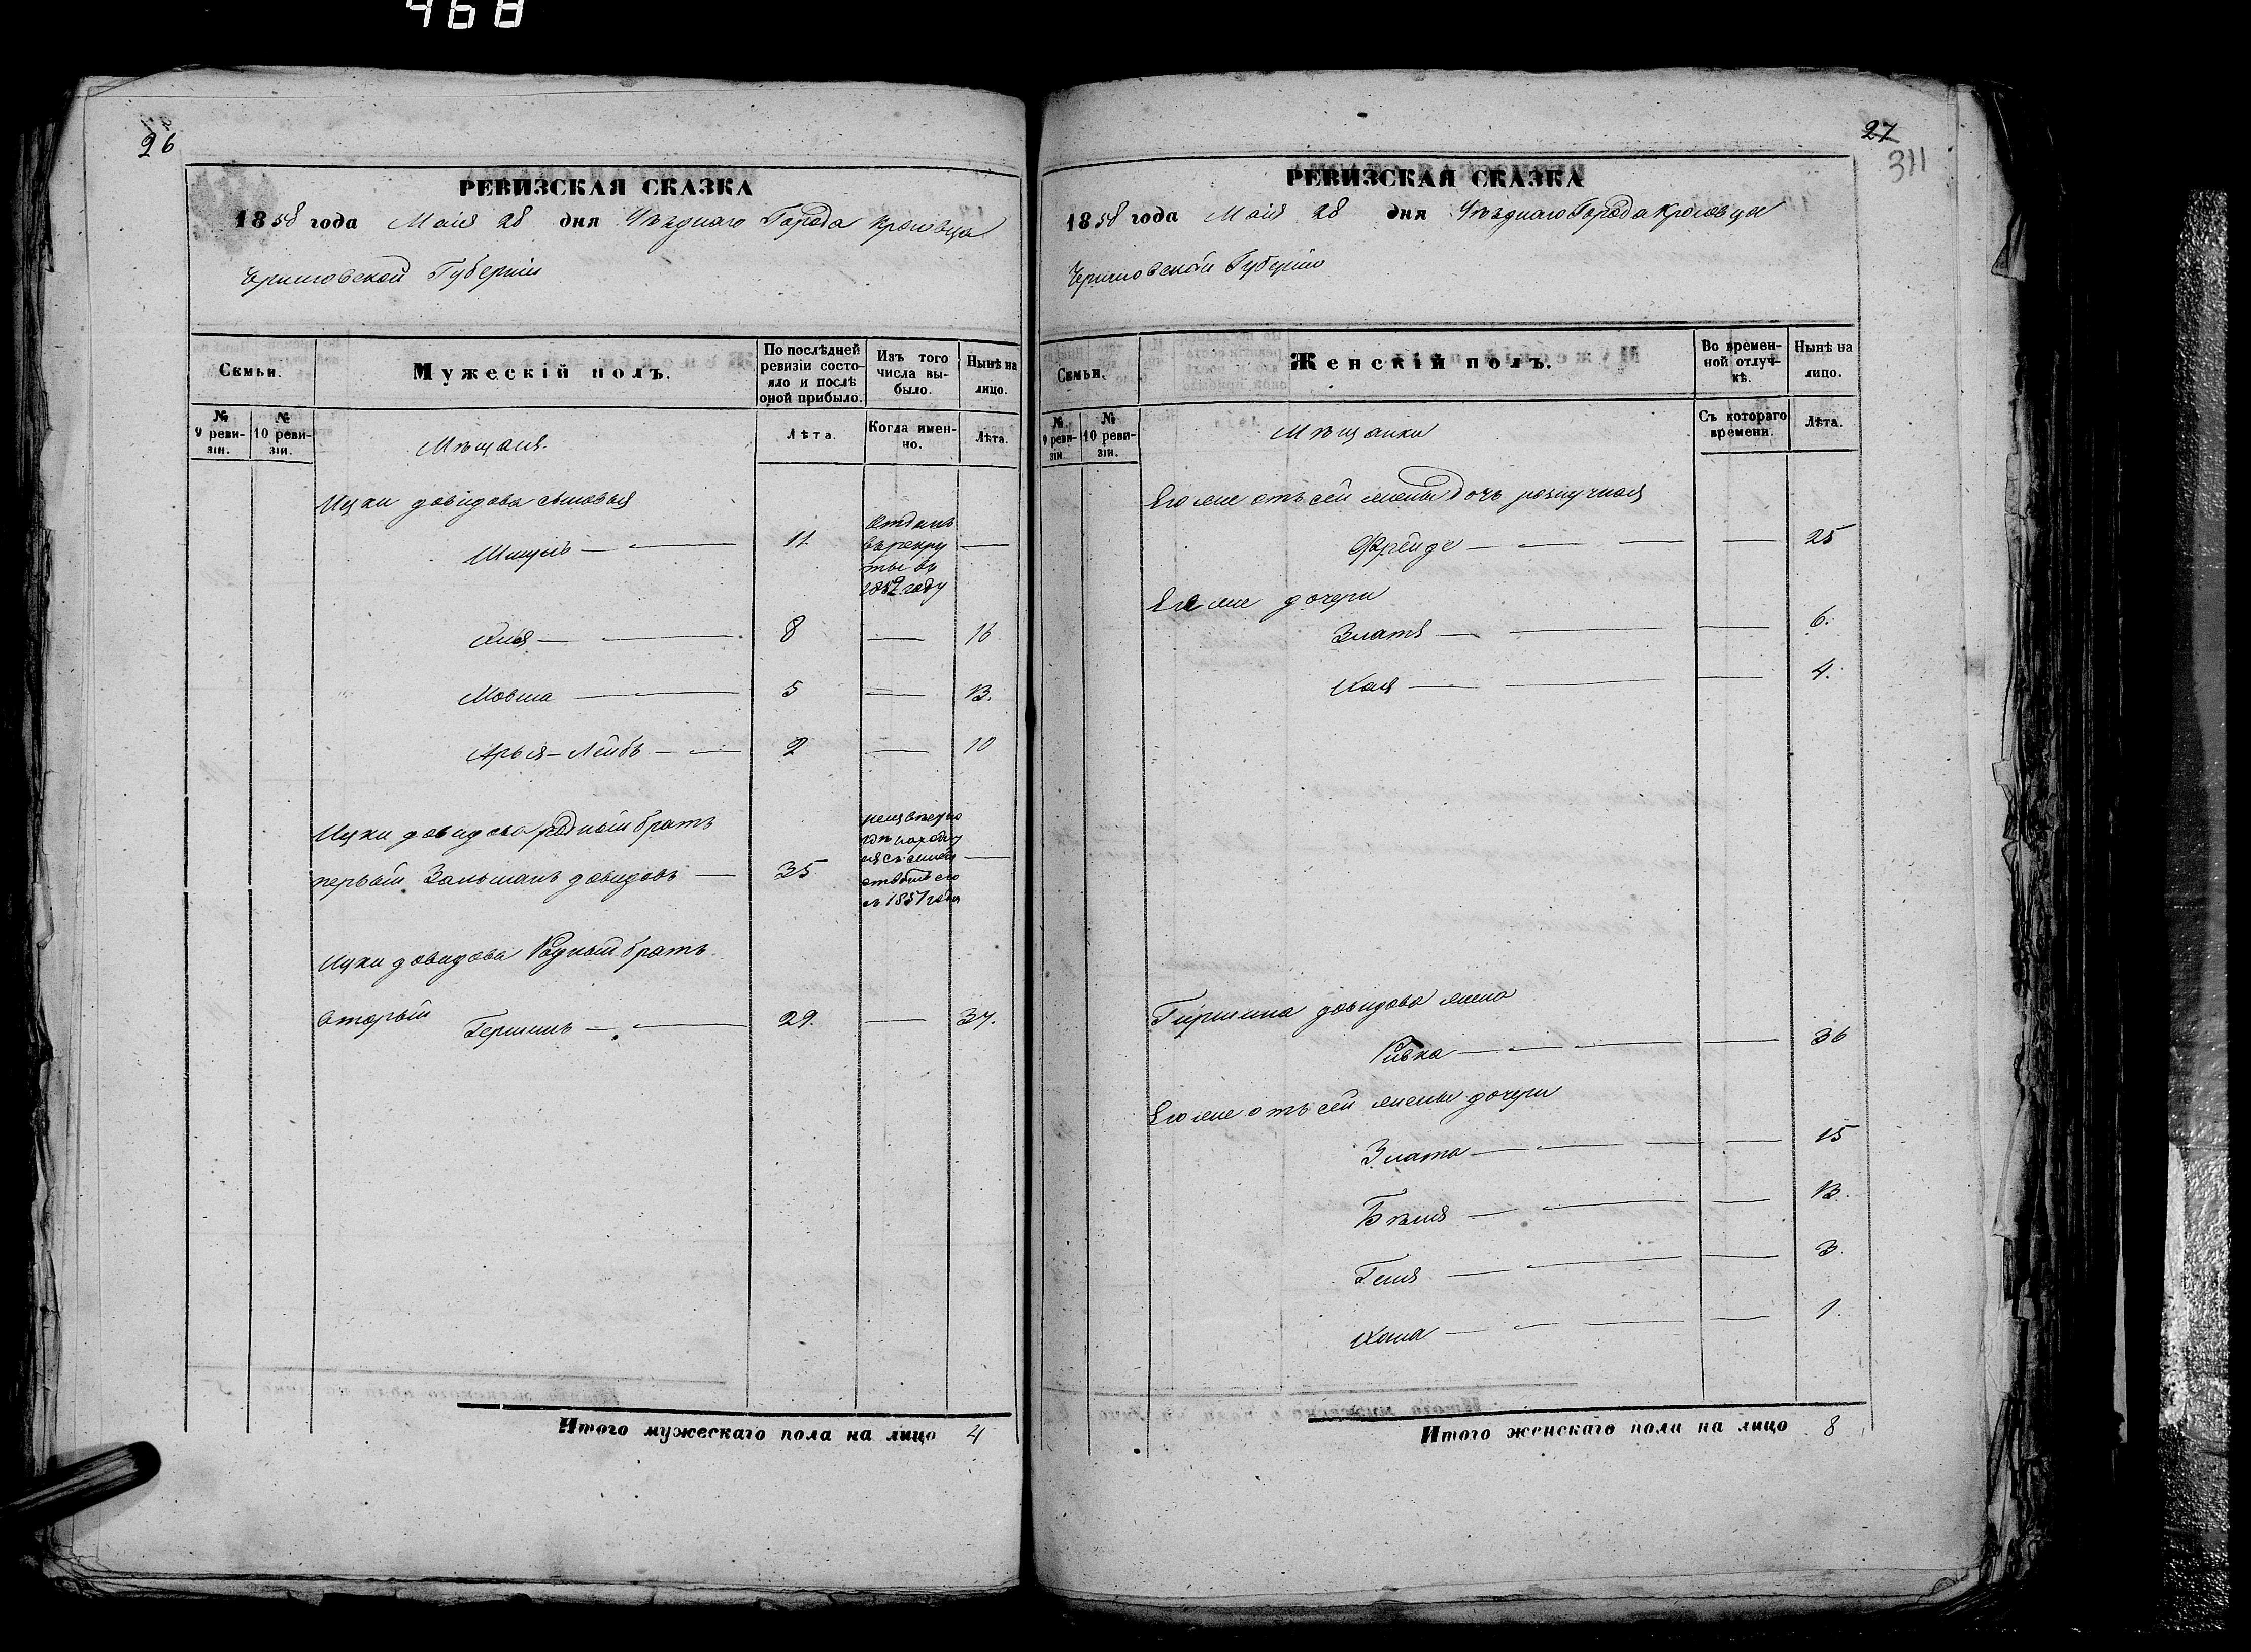 468
26
РЕВИЗСКАЯ СКАЗКА
1858 года Маія 28 дня Уѣзднаго Города Кролевца
Черниговской Губерніи
Семьи.
Мужескій полъ.
По послѣдней ревизіи состояло и послѣ оной прибыло.
Изъ того числа выбыло.
Нынѣ на лицо.
№ 9 ревизіи.
№ 10 ревизіи.
Мѣщаня.
Лѣта.
Когда именно.
Лѣта.
Ицки Довидова сыновья
Шмуль — — 11 Отданъ въ рекруты въ 1852 году —
— — 8 — 16
Мовша — — 5 — 13.
Арья-Лейбъ — — 2 — 10
Ицки Довидова родный братъ
первый Зальманъ Довидовъ — 35 —
съ 1857 года
Ицки Довидова Родный братъ
вторый Гершинъ — — 29. — 37.
Итого мужескаго пола на лицо 4
27
311
РЕВИЗСКАЯ СКАЗКА
1858 года Маія 28 дня Уѣзднаго Города Кролевца
Черниговской Губерніи
Семьи.
Женскій полъ.
Во временной отлучкѣ.
Нынѣ на лицо.
№ 9 ревизіи.
№ 10 ревизіи.
Мѣщанки
Съ котораго времени.
Лѣта.
Его же отъ сей жены дочь
Фрейде — — — — 25
Его же дочери
Златя — — — 6.
Хая — — — 4.
Гиршина Довидова жена
Ривка — — — — 36
Его же отъ сей жены дочери
Злата — — — — 15
Бѣля — — — 13.
Геня — — — 3
Хана — — — — 1
Итого женскаго пола на лицо 8